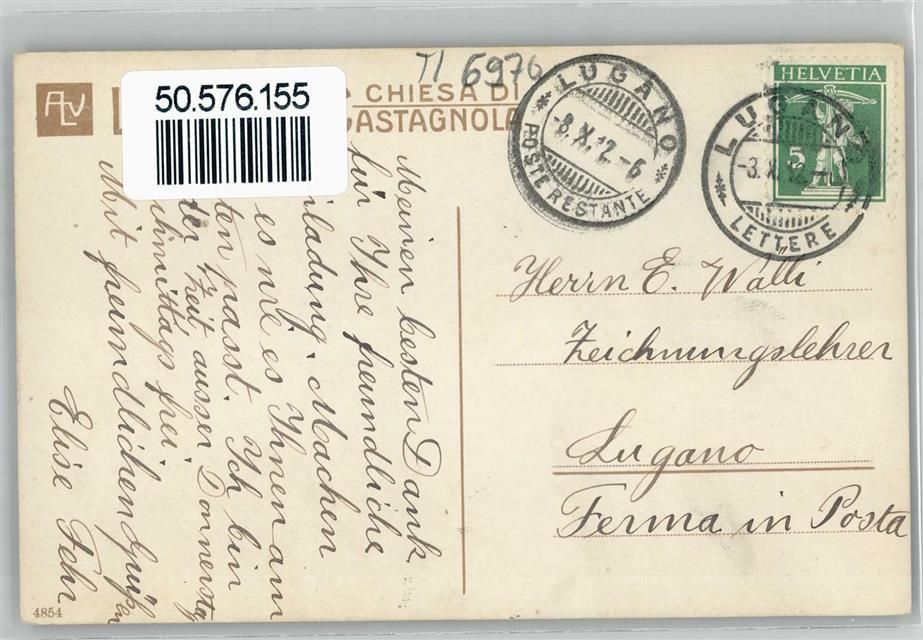 TI 6976
ALV
50.576.155
CHIESA DI
CASTAGNOLA
LUGANO
-8.X.12.-6
POSTE RESTANTE
HELVETIA
5
LUGANO
-3.X.12.-
LETTERE
Herrn E. Wälli
Zeichnungslehrer
Lugano
Ferma in Posta
Meinen besten Dank
für Ihre freundliche
ladung. Machen
es wie es Ihnen am
ten passt. Ich bin
zeit ausser Donnerstag
mittags frei
Mit freundlichen Grüßen
Elise Fehr
4854